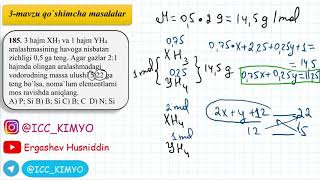 3-mavzu qo`shimcha masalalar
185. 3 hajm XH₃ va 1 hajm YH₄
aralashmasining havoga nisbatan
zichligi 0,5 ga teng. Agar gazlar 2:1
hajmda olingan aralashmadagi
vodorodning massa ulushi 5/22 ga
teng bo`lsa, noma`lum elementlarni
mos ravishda aniqlang.
A) P; Si B) B; Si C) B; C D) N; Si
@ICC_KIMYO
Ergashev Husniddin
@ICC_KIMYO
M = 0,5 · 29 = 14,5 g/mol
0,75
XH₃
0,25
YH₄
1 mol
14,5 g
0,75x + 2,25 + 0,25y + 1 =
= 14,5
0,75x + 0,25y = 11,25
2 mol
XH₄
1 mol
YH₄
2x + y + 12 22
12